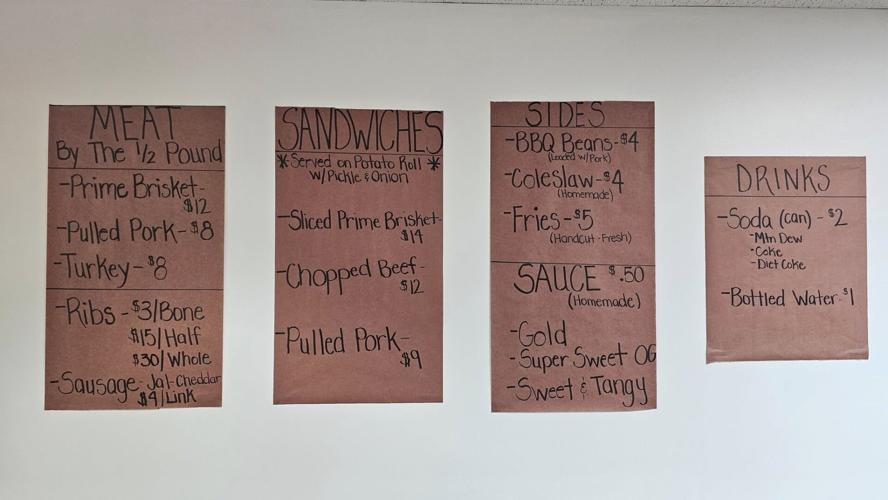 MEAT
By The 1/2 Pound
-Prime Brisket-
$12
-Pulled Pork-$8
-Turkey-$8
-Ribs-$3/Bone
$15/Half
$30/Whole
-Sausage-Jal-Cheddar
$4/Link
SANDWICHES
*Served on Potato Roll*
w/Pickle & Onion
-Sliced Prime Brisket-
$14
-Chopped Beef-
$12
-Pulled Pork-
$9
SIDES
-BBQ Beans-$4
(Loaded w/Pork)
-Coleslaw-$4
(Homemade)
-Fries-$5
(Handcut-Fresh)
SAUCE $.50
(Homemade)
-Gold
-Super Sweet OG
-Sweet & Tangy
DRINKS
-Soda (can)-$2
-Mtn Dew
-Coke
-Diet Coke
-Bottled Water-$1